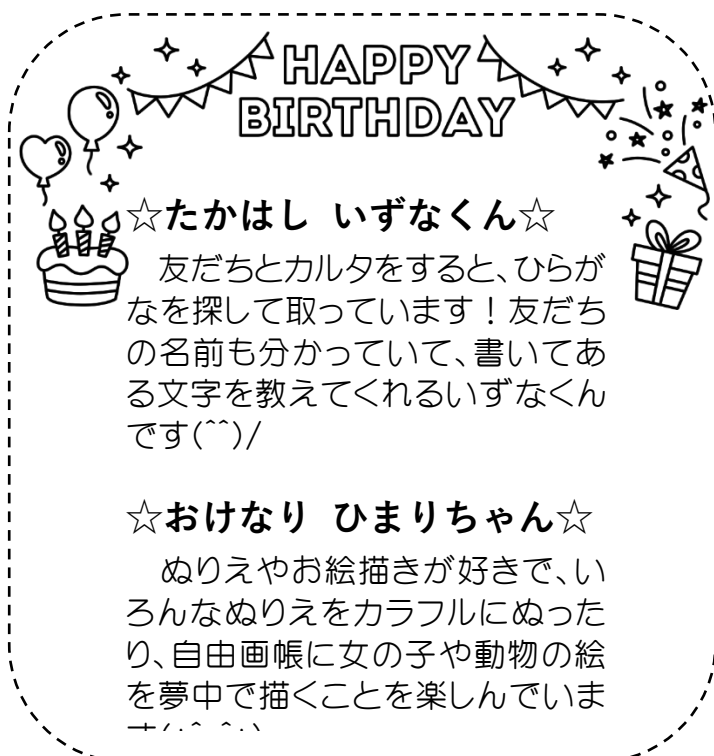 HAPPY
BIRTHDAY
☆たかはし いずなくん☆
友だちとカルタをすると、ひらが
なを探して取っています！友だち
の名前も分かっていて、書いてあ
る文字を教えてくれるいずなくん
です(^^)/
☆おけなり ひまりちゃん☆
ぬりえやお絵描きが好きで、い
ろんなぬりえをカラフルにぬった
り、自由画帳に女の子や動物の絵
を夢中で描くことを楽しんでいま